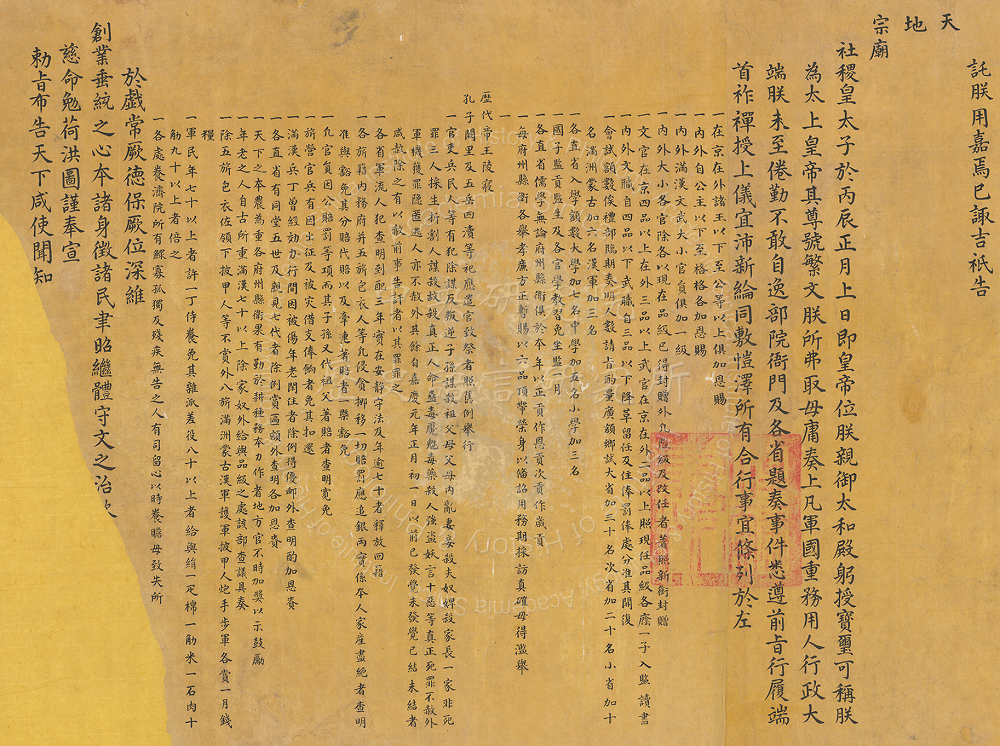 託朕用嘉焉已諏吉祇告
天
地
宗廟
社稷皇太子於丙辰正月上日即皇帝位朕親御太和殿躬授寶璽可稱朕
為太上皇帝其尊號繁文朕所弗取毋庸奏上凡軍國重務用人行政大
端朕未至倦勤不敢自逸部院衙門及各省題奏事件悉遵前旨行履端
首祚禪授上儀宜沛新綸同敷愷澤所有合行事宜條列於左
一在京在外諸王以下至公等以上俱加恩賜
一內外自公主以下至格格各加恩賜
一內外滿漢文武大小官員俱加一級
一內外大小各官除各以現在品級已得封贈外凡陞級及改任者著照新銜封贈
一文官在京四品以上在外三品以上武官在京在外二品以上照現任品級各廕一子入監讀書
一內外文職自四品以下武職自三品以下降革留任及住俸罰俸處分准其開復
一會試額數俟禮部臨期奏明人數請卡酌量廣額鄉試大省加三十名次省加二十名小省加十
名滿洲蒙古加六名漢軍加三名
一各直省入學額數大學加七名中學加五名小學加三名
一國子監貢監生及各官學教習免坐監一月
一各直省儒學無論府州縣衛俱於本年以正貢作恩貢次貢作歲貢
一每府州縣衛各舉孝廉方正暫賜以六品頂帶榮身以備詔用務期採訪真確毋得濫舉
一
歷代帝王陵寢
孔子闕里及五岳四瀆等祀應遣官致祭者照舊例舉行
一官吏兵民人等有犯除謀反叛逆子孫謀殺祖父母父母內亂妻妾殺夫奴婢殺家長一家非死
罪三人採生折割人謀殺故殺真正人命蠱毒魘魅毒藥殺人強盜妖言十惡等真正死罪不赦外
軍機獲罪隱匿逃人亦不赦外其餘自嘉慶元年正月初一日以前已發覺未發覺已結未結者
咸赦除之有以赦前事告訐者以其罪罪之
一各省軍流人犯查明到配三年實在安靜守法及年逾七十者釋放回籍
一各旂務內務府并五旂包衣人等凡侵貪挪移一切賠罰應追銀兩實係本人家產盡絕者查明
准與豁免其分賠代賠以及牽連著賠者一槩豁免
一凡官員因公賠等項而其子孫又代祖父著賠者查明寬免
一旂營官兵有因出征及被災借支俸餉者免其扣還
一滿漢兵丁曾經効力行間因被傷年老閒住者除例得優邮外查明酌加恩賚
一各直省有同堂五世及親見七代者除例賞匾額外查明各加恩賚
一天下之本農為重各府州縣衛果有勤於耕種務本力作者地方官不時加獎以示鼓勵
一年老之人自古所重滿漢七十以上除家奴外給與品級之處該部查議具奏
一除五旂包衣佐領下披甲人等不賞外八旂滿洲蒙古漢軍護軍披甲人炮手步軍各賞一月錢
糧
一軍民年七十以上者許一丁侍養免其雜派差役八十以上者給與絹一疋棉一觔米一石肉十
觔九十以上者倍之
一各處養濟院所有鰥寡孤獨及殘疾無告之人有司留心以時養贍毋致失所
於戲常厥德保厥位深維
創業垂統之心本諸身徵諸民聿昭繼體守文之治
慈命勉荷洪圖謹奉宣
勅旨布告天下咸使聞知